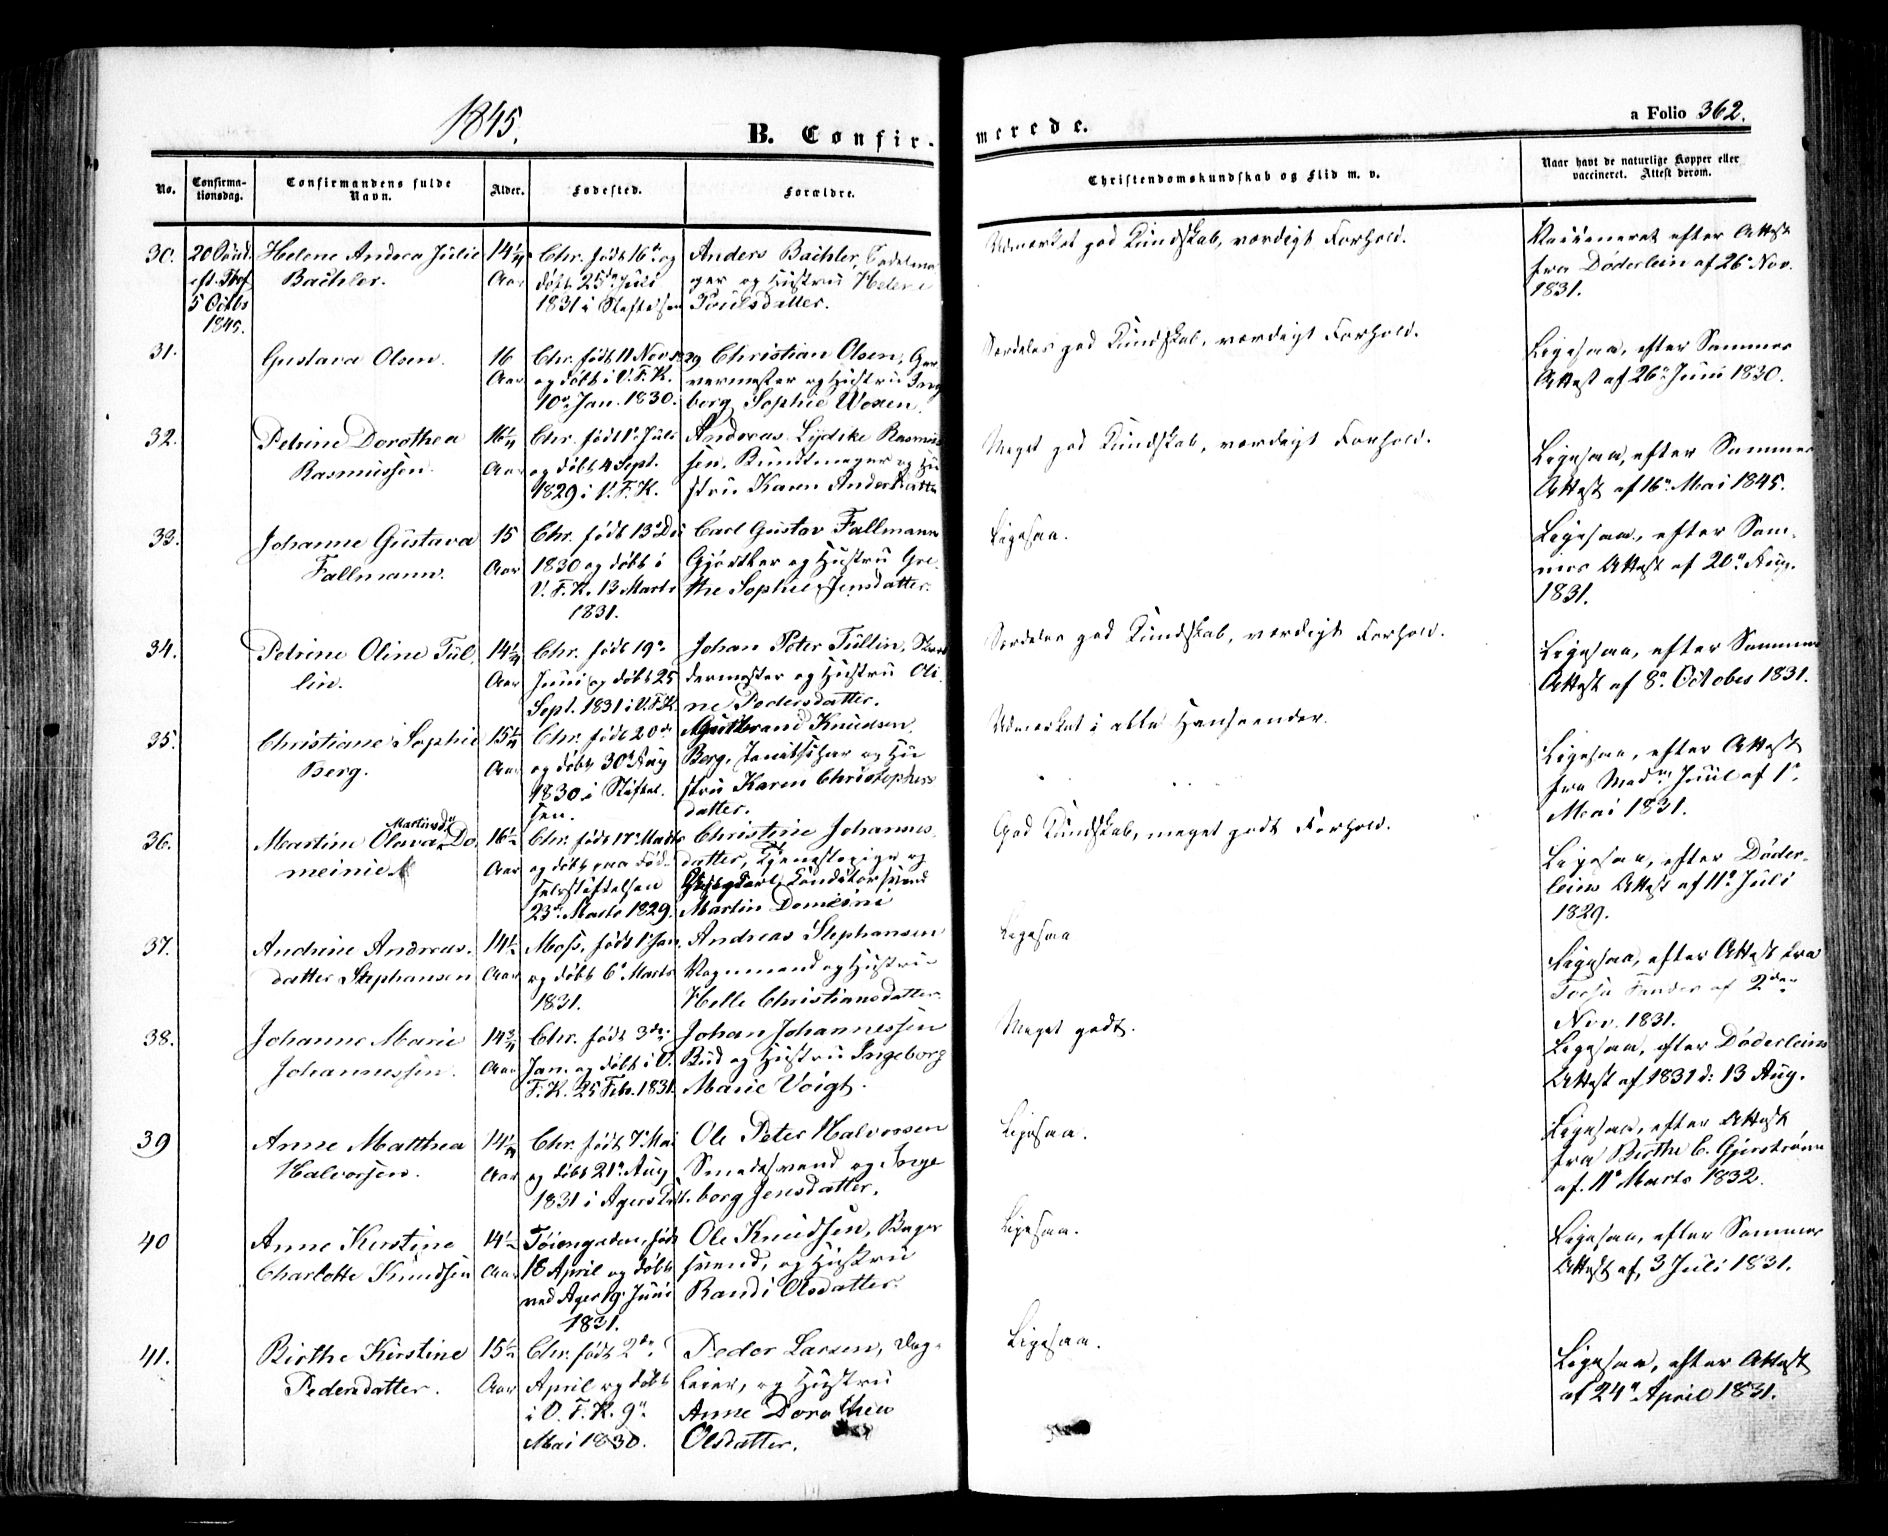 1845.
B. Confir-
merede.
a Folio 362.
No.
Confirma-
tionsdag.
Confirmandens fulde
Navn.
Alder.
Fødested.
Forældre.
Christendomskundskab og Flid m. v.
Naar havt de naturlige Kopper eller
vaccineret. Attest derom.
30.
20 Sønd.
eft. Tref.
5 Octbr
1845.
Helene Andrea Julie
Bachler.
14¼
Aar
Chr. født 16de og
døbt 25de Juli
1831 i Stiftelsen
Anders Bachler, Sadelma-
ger og Hustru Helene
Poulsdatter.
Udmærket god Kundskab, værdigt Forhold.
Vaccineret efter Attest
fra Døderlein af 26de Nov.
1831.
31.
Gustava Olsen.
16
Aar
Chr. født 11 Nov 1829
og døbt i V. F. K.
10de Jan. 1830.
Christian Olsen, Gar-
vermester og Hustru Inge-
borg Sophie Woxen.
Særdeles god Kundskab, værdigt Forhold.
Ligesaa, efter Sammes
Attest af 26de Juni 1830.
32.
Petrine Dorothea
Rasmussen.
16¼
Aar
Chr. født 1de Juli
og døbt 4 Sept.
1829 i V. F. K.
Andreas Lydike Rasmus-
sen, Bundtmager og Hu-
stru Karen Andersdatter
Meget god Kundskab, værdigt Forhold.
Ligesaa, efter Sammes
Attest af 16de Mai 1845.
33.
Johanne Gustava
Fallmann.
15
Aar
Chr. født 13de De
1830 og døbt i
V. F. K. 13 Marts
1831.
Carl Gustav Fallmann
Gjørtler og Hustru Gre-
the Sophie Jensdatter.
Ligesaa.
Ligesaa, efter Sam-
mes Attest af 20de Aug.
1831.
34.
Petrine Oline Tul-
lin.
14¼
Aar
Chr. født 19de
Juni og døbt 25
Sept. 1831 i V. F. K.
Johan Peter Tullin, Skræd-
dermester og Hustru Oli-
ne Pedersdatter.
Særdeles god Kundskab, værdigt Forhold.
Ligesaa, efter Sammes
Attest af 8de October 1831.
35.
Christiane Sophie
Berg.
15¼
Aar
Chr. født 20de
og døbt 30de Aug
1830 i Stiftel-
sen.
Gulbrand Knudsen
Berg, og Hu-
stru Karen Christophers-
datter.
Udmærket i alle Henseender.
Ligesaa, efter Attest
fra Madm Juul af 1de
Mai 1831.
36.
Martinsdr
Martine Olava Do-
meinie
16½
Aar
Chr. født 17de Marts
og døbt paa Fød-
selsstiftelsen
23de Marts 1829.
Christine Johannes-
datter, Tjenestepige og
Conditorsvend
Martin Domeini
God Kundskab, meget godt Forhold.
Ligesaa, efter Døder-
leins Attest af 11de Juli
1829.
37.
Andrine Andreas-
datter Stephansen
14½
Aar
Moss, født 1de Jan.
og døbt 6de Marts
1831.
Andreas Stephansen
Vognmand og Hustru
Helle Christiansdatter
Ligesaa
Ligesaa, efter Attest fra
af 2den
Nov. 1831.
38.
Johanne Marie
Johannessen.
14¾
Aar
Chr. født 3de
Jan. og døbt i V.
F. K. 25 Febr. 1831.
Johan Johannessen
Bud og Hustru Ingeborg
Marie Voigt.
Meget godt.
Ligesaa, efter Døderleins
Attest af 1831 d: 13 Aug.
39
Anne Matthea
Halvorsen.
14¼
Aar
Chr. født 7de Mai
og døbt 21de Aug
1831 i Agers K.
Ole Peter Halvorsen
Smedesvend og Inge-
borg Jensdatter.
Ligesaa.
Ligesaa, efter Attest
fra Birthe C. Gjerstrøm
af 11de Marts 1832.
40
Anne Kirstine
Charlotte Knudsen
14½
Aar
Tøiengaden, født
18 April og døbt
ved Ager 19de Juni
1831.
Ole Knudsen, Bager-
svend, og Hustru
Randi Olsdatter.
Ligesaa.
Ligesaa, efter Sammes
Attest af 3 Juli 1831.
41.
Birthe Kirstine
Pedersdatter.
15½
Aar
Chr. født 2de
April og døbt
i V. F. K. 9de
Mai 1830.
Peder Larsen, Dag-
leier, og Hustru
Anne Dorothea
Olsdatter.
Ligesaa.
Ligesaa, efter Attest
af 24de April 1831.